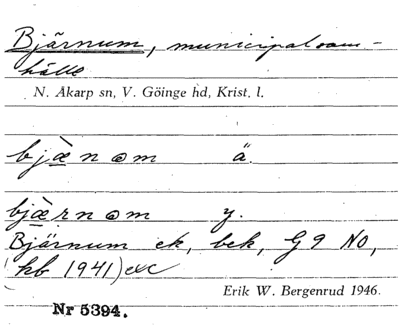 Bjärnum, municipalsam-
hälle
N. Åkarp sn, V. Göinge hd, Krist. l.
bjæ̀nɷm ä.
bjæ̀rnɷm y.
Bjärnum ek, bek, G9 NO,
(kb 1941) exc
Erik W. Bergenrud 1946.
Nr 5394.